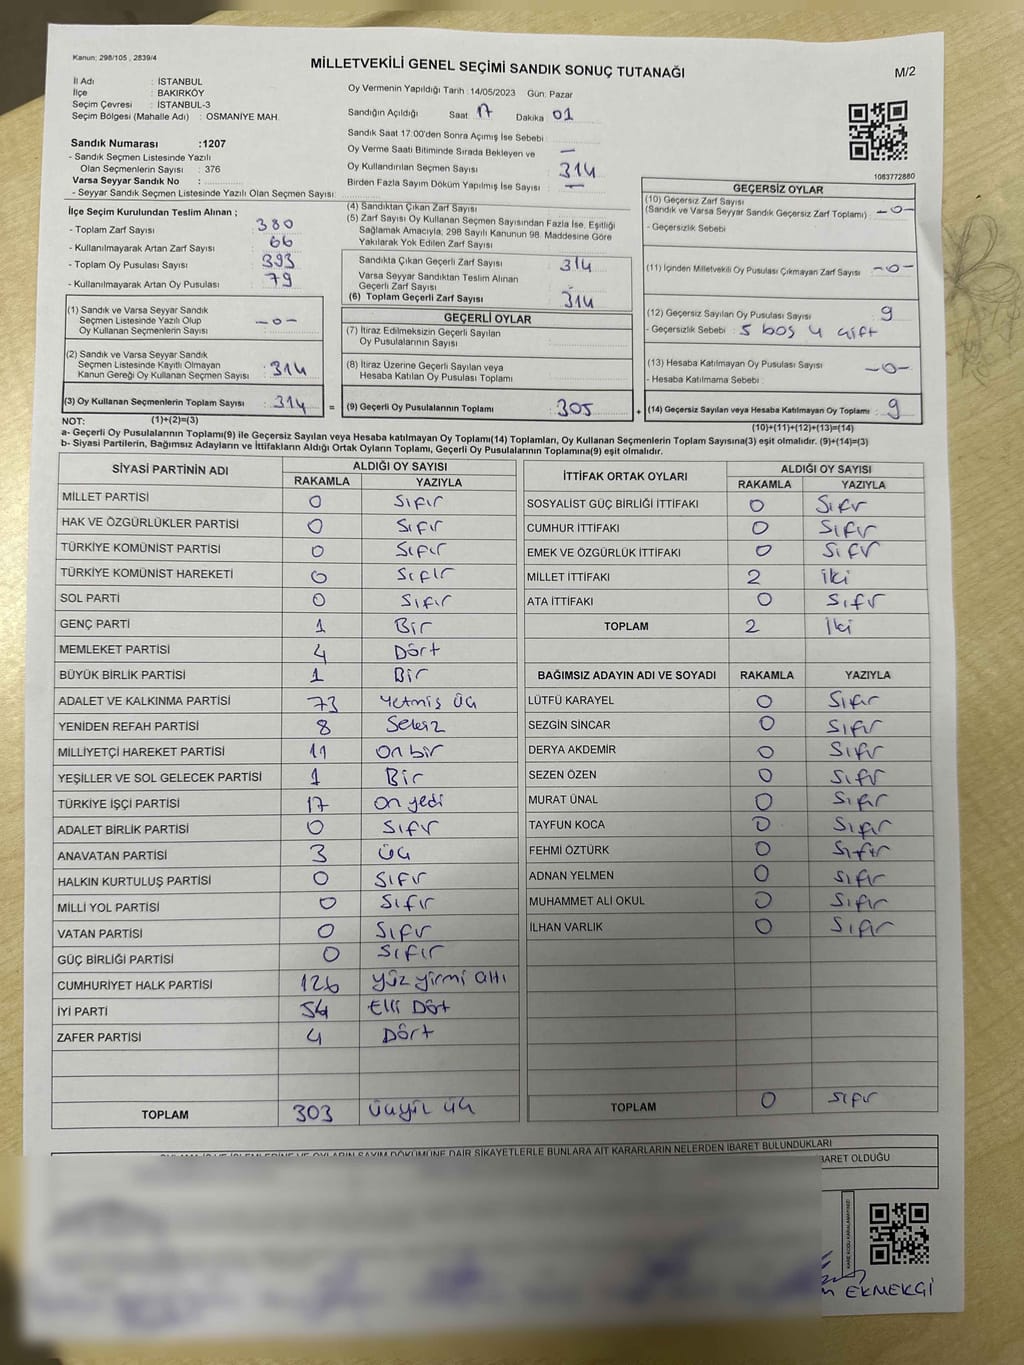 Kanun: 298/105 , 2839/4
MİLLETVEKİLİ GENEL SEÇİMİ SANDIK SONUÇ TUTANAĞI
M/2
İl Adı : İSTANBUL
İlçe : BAKIRKÖY
Seçim Çevresi : İSTANBUL-3
Seçim Bölgesi (Mahalle Adı) : OSMANİYE MAH.
Sandık Numarası :1207
- Sandık Seçmen Listesinde Yazılı
Olan Seçmenlerin Sayısı : 376
Varsa Seyyar Sandık No :
- Seyyar Sandık Seçmen Listesinde Yazılı Olan Seçmen Sayısı:
Oy Vermenin Yapıldığı Tarih : 14/05/2023 Gün: Pazar
Sandığın Açıldığı Saat 17 Dakika 01
Sandık Saat 17.00'den Sonra Açımış İse Sebebi :
Oy Verme Saati Bitiminde Sırada Bekleyen ve —
Oy Kullandırılan Seçmen Sayısı 314
Birden Fazla Sayım Döküm Yapılmış İse Sayısı : —
1083772880
İlçe Seçim Kurulundan Teslim Alınan ;
- Toplam Zarf Sayısı : 380
- Kullanılmayarak Artan Zarf Sayısı : 66
- Toplam Oy Pusulası Sayısı : 393
- Kullanılmayarak Artan Oy Pusulası : 79
(1) Sandık ve Varsa Seyyar Sandık
Seçmen Listesinde Yazılı Olup
Oy Kullanan Seçmenlerin Sayısı : —0—
(2) Sandık ve Varsa Seyyar Sandık
Seçmen Listesinde Kayıtlı Olmayan
Kanun Gereği Oy Kullanan Seçmen Sayısı : 314
(3) Oy Kullanan Seçmenlerin Toplam Sayısı : 314
(1)+(2)=(3)
(4) Sandıktan Çıkan Zarf Sayısı
(5) Zarf Sayısı Oy Kullanan Seçmen Sayısından Fazla İse, Eşitliği
Sağlamak Amacıyla, 298 Sayılı Kanunun 98. Maddesine Göre
Yakılarak Yok Edilen Zarf Sayısı
Sandıkta Çıkan Geçerli Zarf Sayısı : 314
Varsa Seyyar Sandıktan Teslim Alınan
Geçerli Zarf Sayısı :
(6) Toplam Geçerli Zarf Sayısı : 314
GEÇERLİ OYLAR
(7) İtiraz Edilmeksizin Geçerli Sayılan
Oy Pusulalarının Sayısı :
(8) İtiraz Üzerine Geçerli Sayılan veya
Hesaba Katılan Oy Pusulası Toplamı :
= (9) Geçerli Oy Pusulalarının Toplamı : 305
GEÇERSİZ OYLAR
(10) Geçersiz Zarf Sayısı
(Sandık ve Varsa Seyyar Sandık Geçersiz Zarf Toplamı) : —0—
- Geçersizlik Sebebi
(11) İçinden Milletvekili Oy Pusulası Çıkmayan Zarf Sayısı : —0—
(12) Geçersiz Sayılan Oy Pusulası Sayısı : 9
- Geçersizlik Sebebi : 5 boş 4 çift
(13) Hesaba Katılmayan Oy Pusulası Sayısı : —0—
- Hesaba Katılmama Sebebi :
+ (14) Geçersiz Sayılan veya Hesaba Katılmayan Oy Toplamı : 9
(10)+(11)+(12)+(13)=(14)
NOT:
a- Geçerli Oy Pusulalarının Toplamı(9) ile Geçersiz Sayılan veya Hesaba katılmayan Oy Toplamı(14) Toplamları, Oy Kullanan Seçmenlerin Toplam Sayısına(3) eşit olmalıdır. (9)+(14)=(3)
b- Siyasi Partilerin, Bağımsız Adayların ve İttifakların Aldığı Ortak Oyların Toplamı, Geçerli Oy Pusulalarının Toplamına(9) eşit olmalıdır.
SİYASİ PARTİNİN ADI ALDIĞI OY SAYISI
RAKAMLA YAZIYLA
MİLLET PARTİSİ 0 Sıfır
HAK VE ÖZGÜRLÜKLER PARTİSİ 0 Sıfır
TÜRKİYE KOMÜNİST PARTİSİ 0 Sıfır
TÜRKİYE KOMÜNİST HAREKETİ 0 Sıfır
SOL PARTİ 0 Sıfır
GENÇ PARTİ 1 Bir
MEMLEKET PARTİSİ 4 Dört
BÜYÜK BİRLİK PARTİSİ 1 Bir
ADALET VE KALKINMA PARTİSİ 73 Yetmiş üç
YENİDEN REFAH PARTİSİ 8 Sekiz
MİLLİYETÇİ HAREKET PARTİSİ 11 on bir
YEŞİLLER VE SOL GELECEK PARTİSİ 1 Bir
TÜRKİYE İŞÇİ PARTİSİ 17 on yedi
ADALET BİRLİK PARTİSİ 0 Sıfır
ANAVATAN PARTİSİ 3 üç
HALKIN KURTULUŞ PARTİSİ 0 Sıfır
MİLLİ YOL PARTİSİ 0 Sıfır
VATAN PARTİSİ 0 Sıfır
GÜÇ BİRLİĞİ PARTİSİ 0 Sıfır
CUMHURİYET HALK PARTİSİ 126 Yüz yirmi altı
İYİ PARTİ 54 Elli Dört
ZAFER PARTİSİ 4 Dört
TOPLAM 303 üçyüz üç
İTTİFAK ORTAK OYLARI ALDIĞI OY SAYISI
RAKAMLA YAZIYLA
SOSYALİST GÜÇ BİRLİĞİ İTTİFAKI 0 Sıfır
CUMHUR İTTİFAKI 0 Sıfır
EMEK VE ÖZGÜRLÜK İTTİFAKI 0 Sıfır
MİLLET İTTİFAKI 2 iki
ATA İTTİFAKI 0 Sıfır
TOPLAM 2 İki
BAĞIMSIZ ADAYIN ADI VE SOYADI RAKAMLA YAZIYLA
LÜTFÜ KARAYEL 0 Sıfır
SEZGİN SİNCAR 0 Sıfır
DERYA AKDEMİR 0 Sıfır
SEZEN ÖZEN 0 Sıfır
MURAT ÜNAL 0 Sıfır
TAYFUN KOCA 0 Sıfır
FEHMİ ÖZTÜRK 0 Sıfır
ADNAN YELMEN 0 Sıfır
MUHAMMET ALİ OKUL 0 Sıfır
İLHAN VARLIK 0 Sıfır
TOPLAM 0 Sıfır
SAYIM DÖKÜMÜNE DAİR ŞİKAYETLERLE BUNLARA AİT KARARLARIN NELERDEN İBARET BULUNDUKLARI
İBARET OLDUĞU
EKMEKÇİ